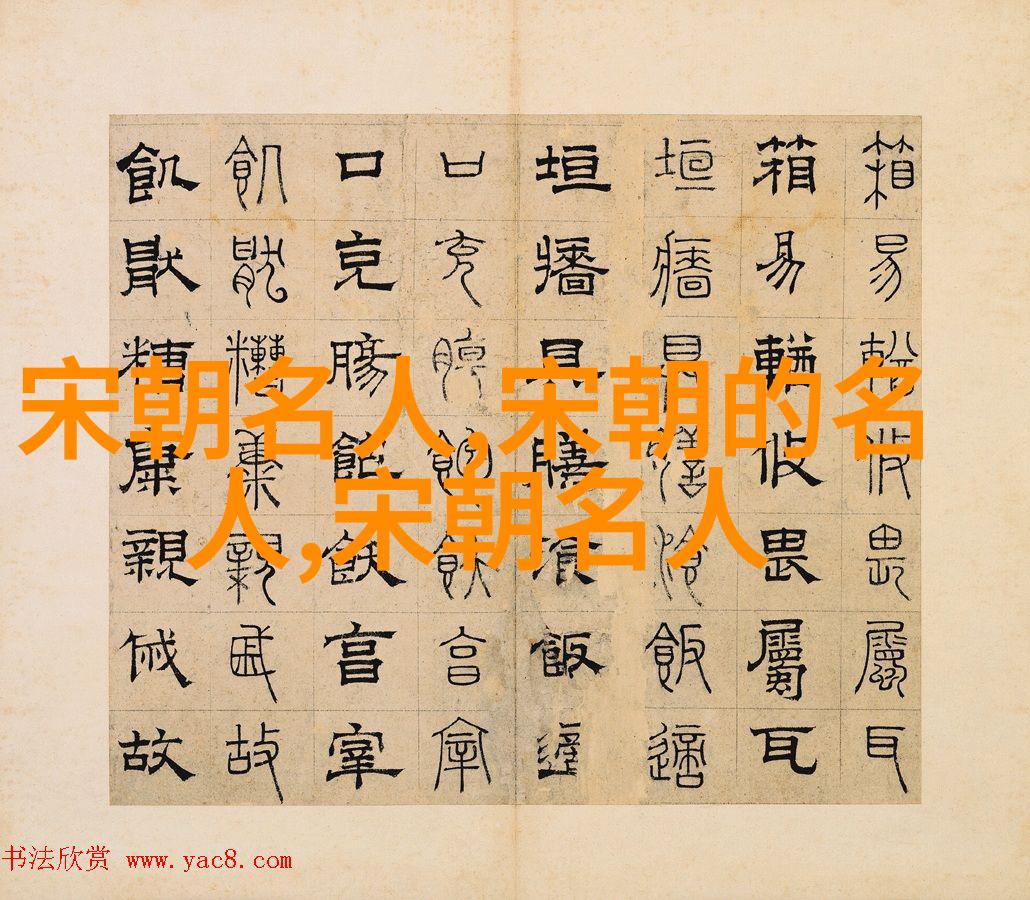 箱易輶攸畏屬耳
箱易輶攸畏屬耳
垣牆具膳飡飯適
垣牆具膳飡飯適
口充腸飽飫亯宰
口充腸飽飫亯宰
飢厭糟糠親戚故
飢厭糟糠親戚故
宋朝名人,宋朝的名
人,宋朝名人
书法欣赏 www.yac8.com